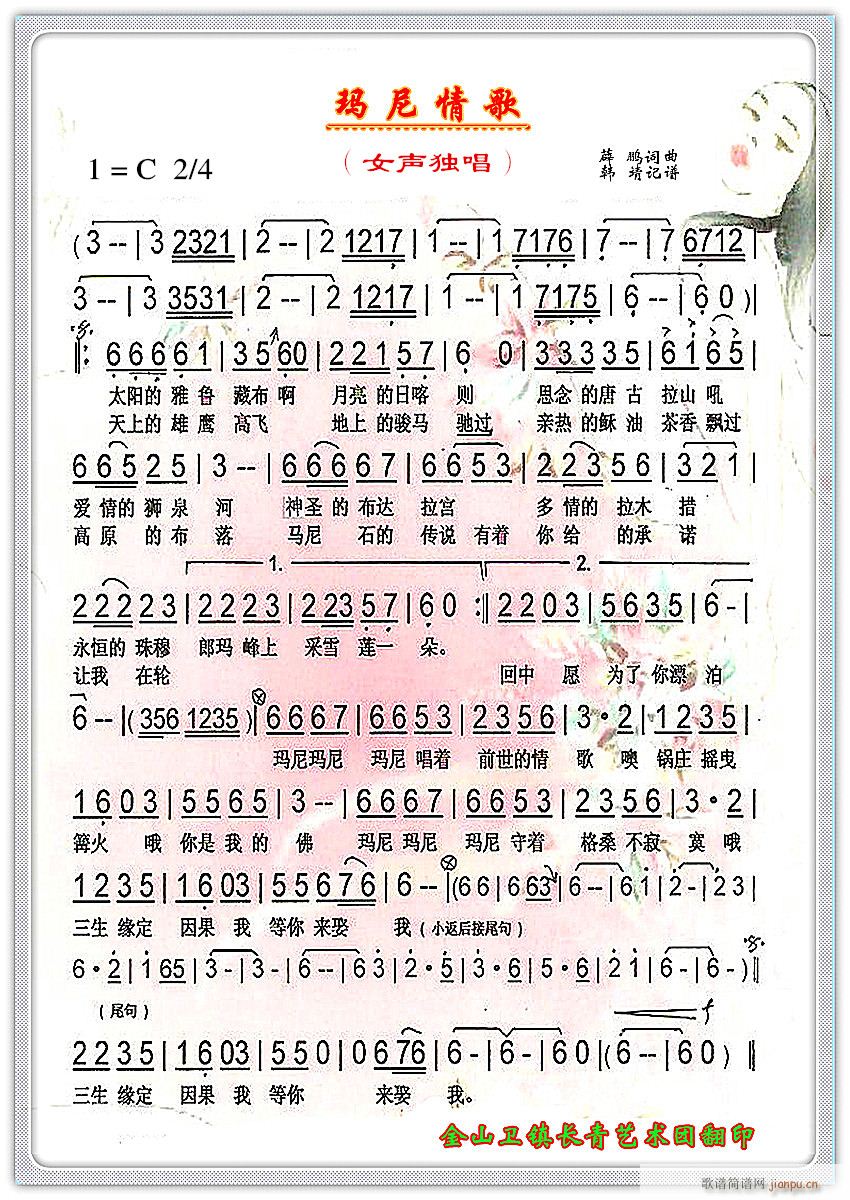 玛尼情歌
1 = C 2/4
（女声独唱）
薛 鹏词曲
韩 靖记谱
( 3 -- | 3 2321 | 2 -- | 2 1217 | 1 -- | 1 7176 | 7 -- | 7 6712 |
3 -- | 3 3531 | 2 -- | 2 1217 | 1 -- | 1 7175 | 6 -- | 6 0 ) |
‖: 6 6 6 6 6 1 | 3 5 6 0 | 2 2 1 5 7 | 6 0 | 3 3 3 3 5 | 6 1 6 5 |
太阳的 雅 鲁 藏布 啊 月亮 的日喀 则 思念 的唐 古 拉山 吼
天上的 雄 鹰 高飞 地上 的骏马 驰过 亲热 的稣 油 茶香 飘过
6 6 5 2 5 | 3 -- | 6 6 6 6 7 | 6 6 5 3 | 2 2 3 5 6 | 3 2 1 |
爱 情的 狮 泉 河 神圣 的 布达 拉宫 多 情的 拉木 措
高 原 的 布 落 马尼 石的 传说 有着 你 给 的承 诺
1. 2.
2 2 2 2 3 | 2 2 2 3 | 2 2 3 5 7 | 6 0 :‖ 2 2 0 3 | 5 6 3 5 | 6 - |
永恒的 珠穆 郎玛 峰上 采雪 莲一 朵。
让我 在轮 回中 愿 为了 你漂 泊
6 -- | ( 356 1235 ) | 6 6 6 7 | 6 6 5 3 | 2 3 5 6 | 3 · 2 | 1 2 3 5 |
玛尼玛尼 玛尼 唱着 前世的情 歌 噢 锅庄 摇曳
1 6 0 3 | 5 5 6 5 | 3 -- | 6 6 6 7 | 6 6 5 3 | 2 3 5 6 | 3 · 2 |
篝火 哦 你是 我 的 佛 玛尼 玛尼 玛尼 守着 格桑 不寂 寞 哦
1 2 3 5 | 1 6 0 3 | 5 5 6 7 6 | 6 - | ( 6 6 | 6 63 | 6 -- | 6 1 | 2 - | 2 3 |
三生 缘定 因果 我 等你 来娶 我 ( 小返后接尾句 )
6 · 2 | 1 65 | 3 - | 3 - | 6 - | 6 3 | 2 · 5 | 3 · 6 | 5 · 2 | 6 - | 6 - ) ‖
( 尾句 ) f
2 2 3 5 | 1 6 0 3 | 5 5 0 | 0 6 76 | 6 - | 6 - | 6 0 | ( 6 -- | 6 0 ) ‖
三生 缘定 因果 我 等你 来娶 我。
金山卫镇长青艺术团翻印
歌谱简谱网
jianpu.cn